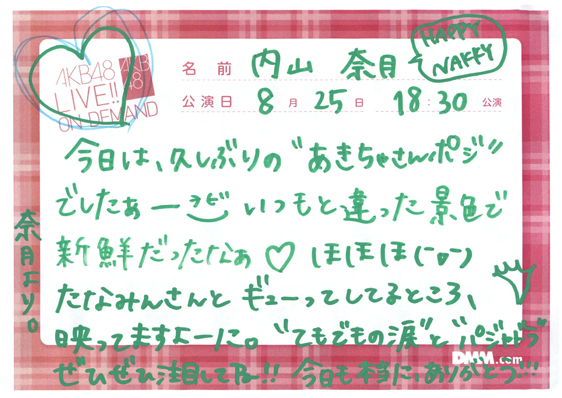 HAPPY
NAKKY
AKB48
LIVE!!
ON DEMAND
AKB
48
名前 内山 奈月
公演日 8月25日 18:30公演
今日は、久しぶりの"あきちゃさんポジ"
でしたぁー いつもと違った景色で
新鮮だったなぁ♡ ほほほ
たなみんさんと ギューってしてるところ、
映ってますよーに。"てもでもの涙"と"パジャドラ"
DMM.com
ぜひぜひ注目してね!! 今日も本当に、ありがとう
奈月より。